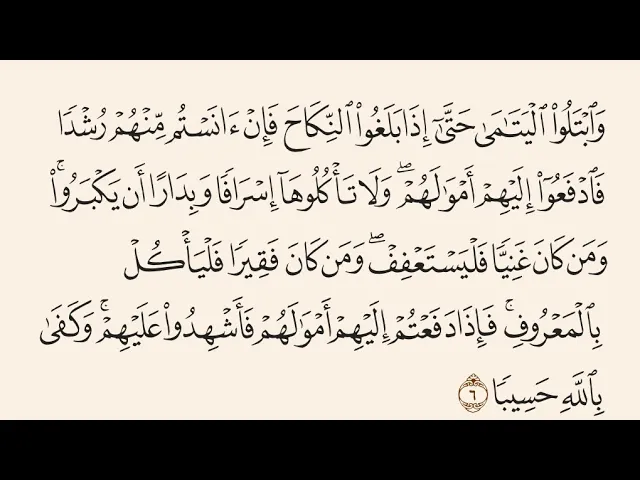 وَٱبْتَلُوا۟ ٱلْيَتَـٰمَىٰ حَتَّىٰٓ إِذَا بَلَغُوا۟ ٱلنِّكَاحَ فَإِنْ ءَانَسْتُم مِّنْهُمْ رُشْدًا
فَٱدْفَعُوٓا۟ إِلَيْهِمْ أَمْوَٰلَهُمْ ۖ وَلَا تَأْكُلُوهَآ إِسْرَافًا وَبِدَارًا أَن يَكْبَرُوا۟ ۚ
وَمَن كَانَ غَنِيًّا فَلْيَسْتَعْفِفْ ۖ وَمَن كَانَ فَقِيرًا فَلْيَأْكُلْ
بِٱلْمَعْرُوفِ ۚ فَإِذَا دَفَعْتُمْ إِلَيْهِمْ أَمْوَٰلَهُمْ فَأَشْهِدُوا۟ عَلَيْهِمْ ۚ وَكَفَىٰ
بِٱللَّهِ حَسِيبًا ٦